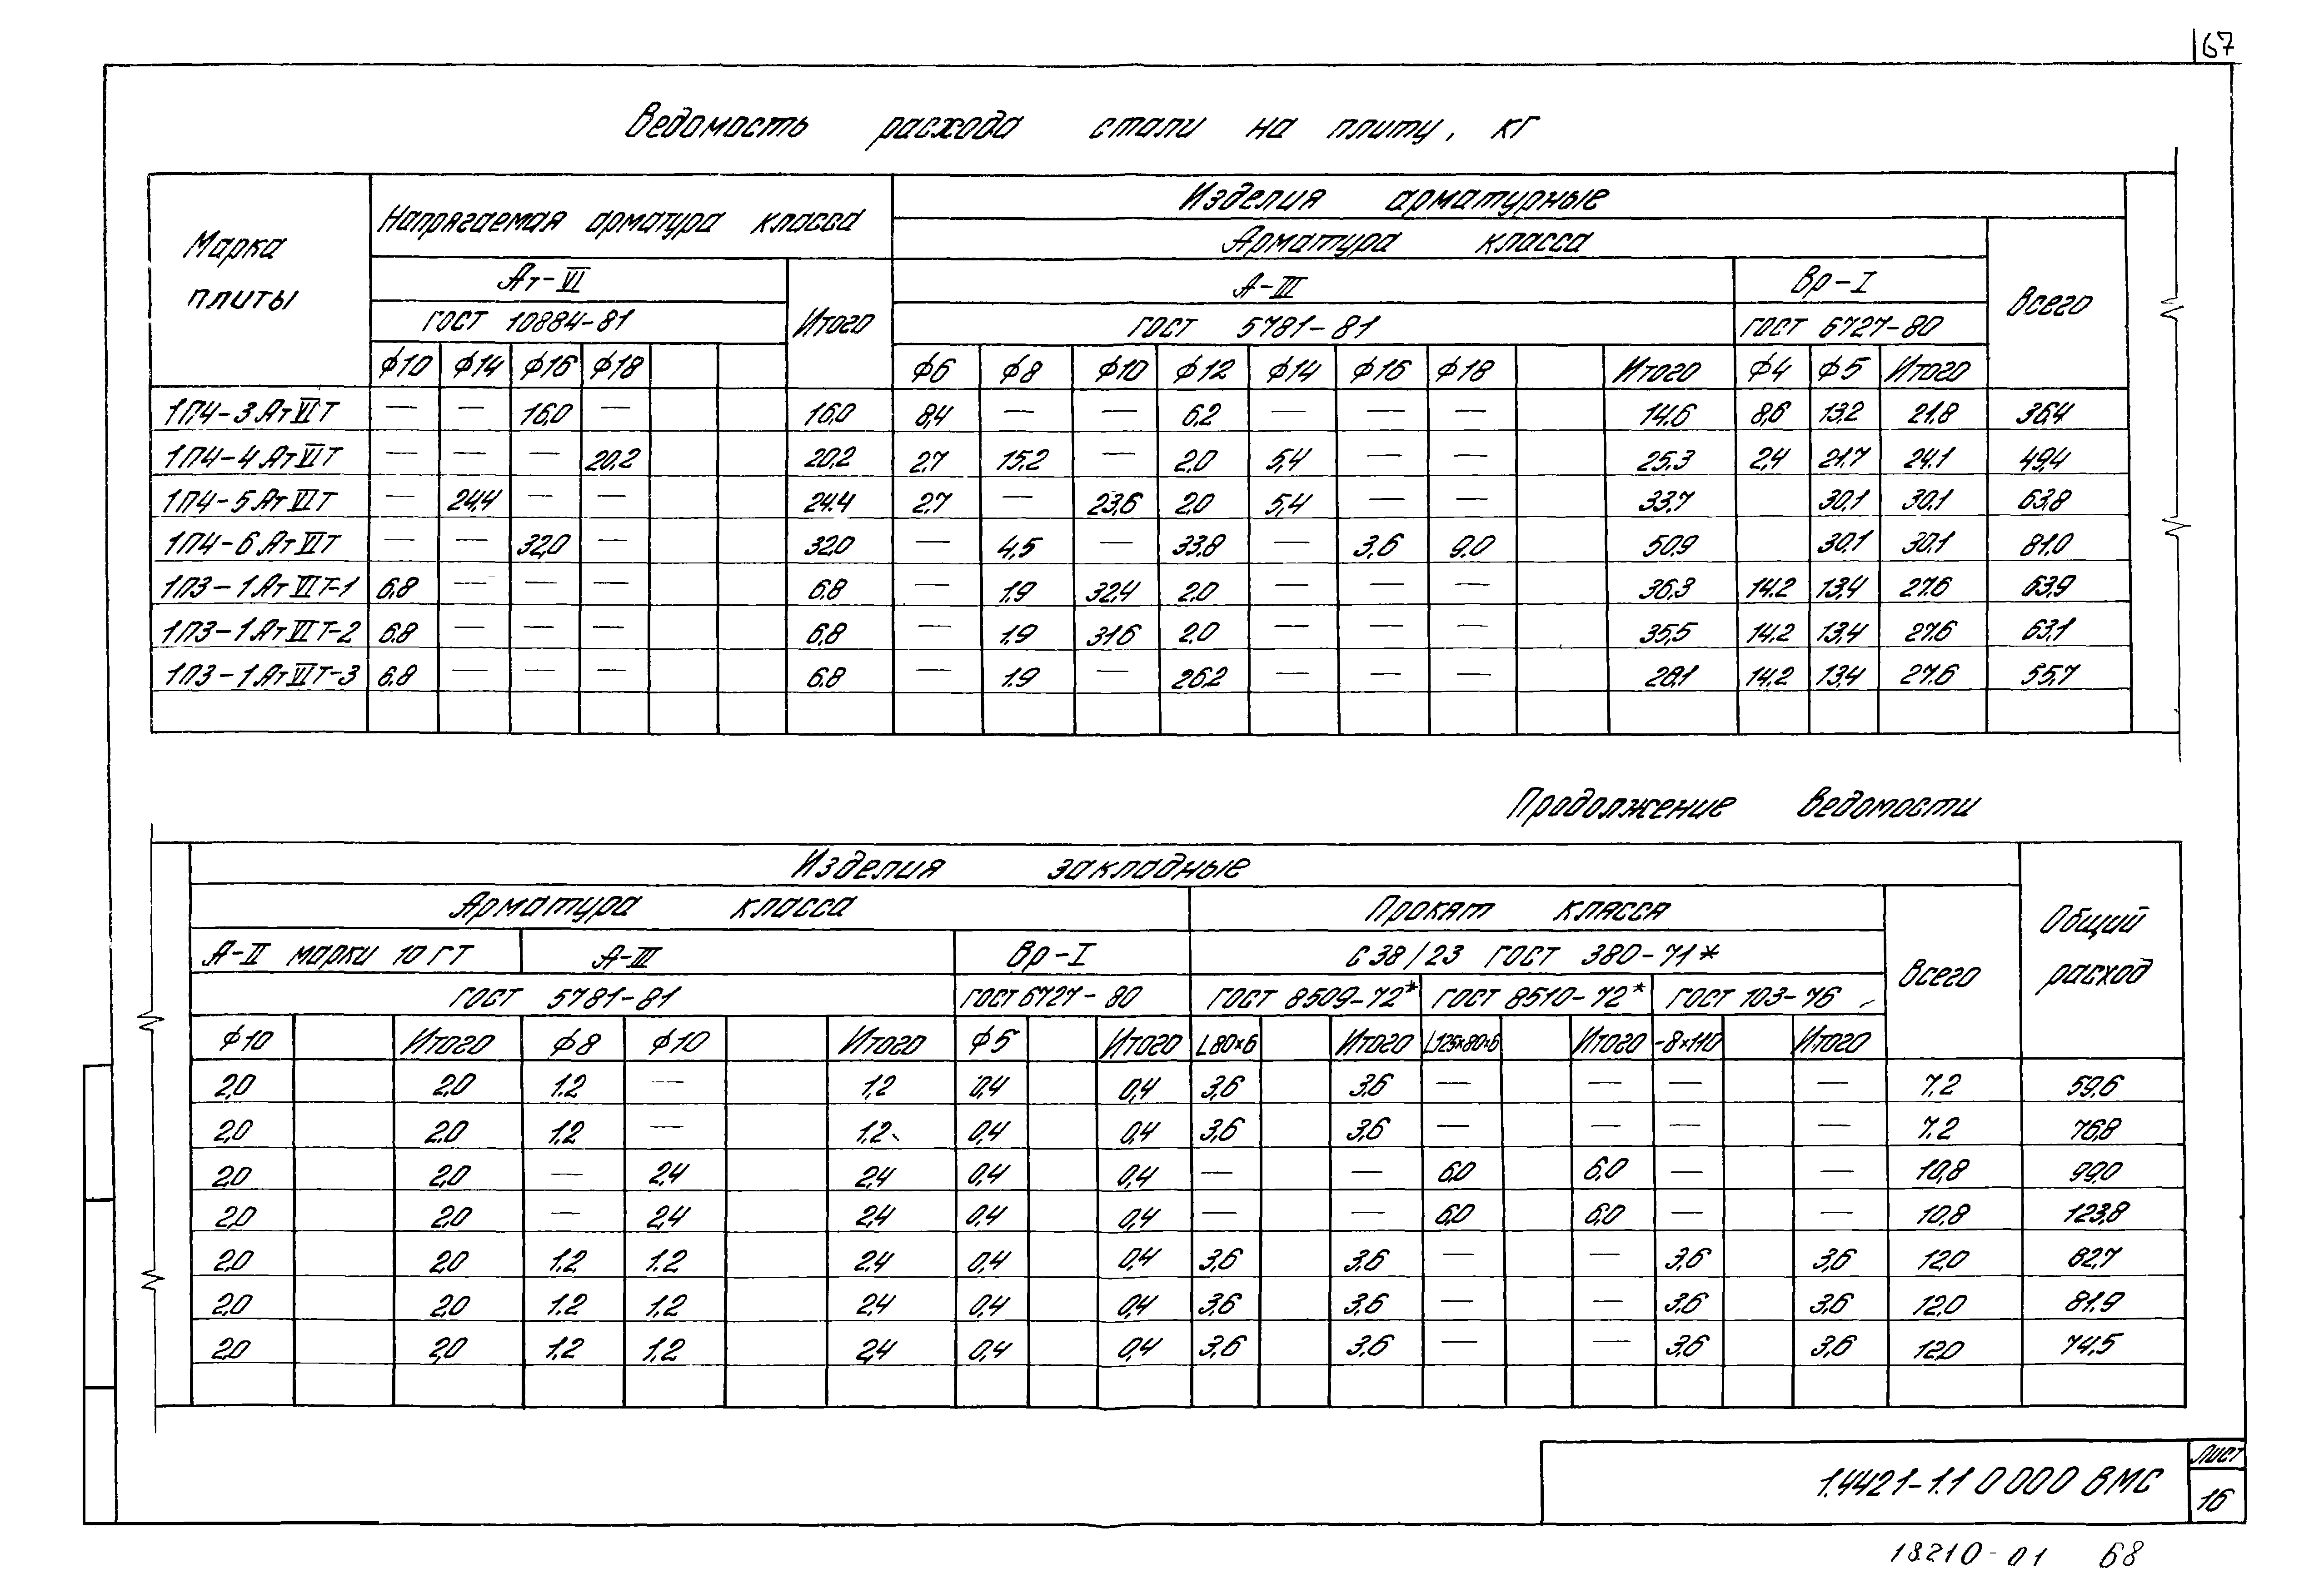 67
Ведомость расхода стали на плиту, кг
Марка плиты | Напрягаемая арматура класса | Изделия арматурные
Арматура класса | Всего
Ат-VI | Итого | А-III | Вр-I
ГОСТ 10884-81 | ГОСТ 5781-81 | ГОСТ 6727-80
ф10 | ф14 | ф16 | ф18 | ф6 | ф8 | ф10 | ф12 | ф14 | ф16 | ф18 | Итого | ф4 | ф5 | Итого
1П4-3АтVIТ | — | — | 16,0 | — | 16,0 | 8,4 | — | — | 6.2 | — | — | — | 14.6 | 8,6 | 13,2 | 21.8 | 36,4
1П4-4АтVIТ | — | — | — | 20,2 | 20,2 | 2,7 | 15,2 | — | 2,0 | 5,4 | — | — | 25,3 | 2,4 | 21,7 | 24.1 | 49,4
1П4-5АтVIТ | — | 24,4 | — | — | 24.4 | 2,7 | — | 23,6 | 2,0 | 5,4 | — | — | 33,7 | 30,1 | 30,1 | 63,8
1П4-6АтVIТ | — | — | 32,0 | — | 32,0 | — | 4,5 | — | 33,8 | — | 3,6 | 9,0 | 50,9 | 30,1 | 30,1 | 81,0
1П3-1АтVIТ-1 | 6,8 | — | — | — | 6,8 | — | 1,9 | 32,4 | 2,0 | — | — | — | 36,3 | 14.2 | 13,4 | 27,6 | 63,9
1П3-1АтVIТ-2 | 6,8 | — | — | — | 6,8 | — | 1,9 | 31,6 | 2,0 | — | — | — | 35,5 | 14,2 | 13,4 | 27,6 | 63,1
1П3-1АтVIТ-3 | 6,8 | — | — | — | 6.8 | — | 1.9 | — | 26,2 | — | — | — | 28,1 | 14,2 | 13,4 | 27,6 | 55,7
Продолжение ведомости
Изделия закладные | Общий расход
Арматура класса | Прокат класса | Всего
А-II марки 10 ГТ | А-III | Вр-I | С38/23 ГОСТ 380-71*
ГОСТ 5781-81 | ГОСТ 6727-80 | ГОСТ 8509-72* | ГОСТ 8510-72* | ГОСТ 103-76
ф10 | Итого | ф8 | ф10 | Итого | ф5 | Итого | L80×6 | Итого | L125×80×6 | Итого | -8×110 | Итого
2,0 | 2,0 | 1.2 | — | 1,2 | 0,4 | 0,4 | 3,6 | 3,6 | — | — | — | — | 7.2 | 59,6
2,0 | 2,0 | 1.2 | — | 1.2 | 0,4 | 0,4 | 3,6 | 3,6 | — | — | — | — | 7.2 | 76,8
2,0 | 2,0 | — | 2,4 | 2,4 | 0,4 | 0,4 | — | — | 6,0 | 6,0 | — | — | 10,8 | 99,0
2,0 | 2,0 | — | 2,4 | 2,4 | 0,4 | 0,4 | — | — | 6,0 | 6,0 | — | — | 10,8 | 123,8
2,0 | 2,0 | 1.2 | 1.2 | 2,4 | 0,4 | 0,4 | 3,6 | 3,6 | — | — | 3,6 | 3,6 | 12,0 | 82,7
2,0 | 2,0 | 1.2 | 1.2 | 2,4 | 0,4 | 0,4 | 3,6 | 3,6 | — | — | 3,6 | 3,6 | 12,0 | 81,9
2,0 | 2,0 | 1.2 | 1.2 | 2,4 | 0,4 | 0,4 | 3,6 | 3,6 | — | — | 3,6 | 3,6 | 12,0 | 74,5
1.442.1-1.1 0 000 ВМС
Лист
16
18210-01 68